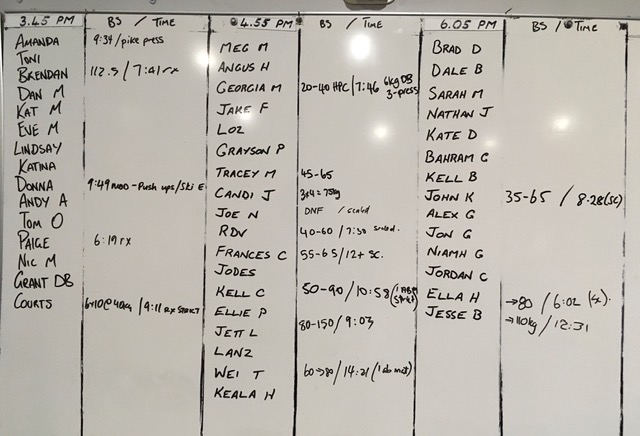 3.45 PM BS / TIME 4.55 PM BS / TIME 6.05 PM BS / TIME
AMANDA 9:34/pike press
TONI
BRENDAN 112.5 / 7:41 rx
DAN M
KAT M
EVE M
LINDSAY
KATINA
DONNA 9:49 - Push ups/Ski E
ANDY A
TOM O
PAIGE 6:19 rx
NIC M
GRANT DB
COURTS 6x10@40kg / 9:11 rx STRICT
MEG M
ANGUS H
GEORGIA M 20-40 HPC / 7:46 6kg DB
3-press
JAKE F
LOZ
GRAYSON P
TRACEY M 45-65
CANDI J 3x4=75kg
JOE N DNF / scaled
RDV 40-60 / 7:50 scaled.
FRANCES C 55-65/12+ sc.
JODES
KELL C 50-90 / 10:58 (1 
ELLIE P
JETT L 80-150/9:03
LANZ
WEI T 60→80 /14:21 (1 ab mat)
KEALA H
BRAD D
DALE B
SARAH M
NATHAN J
KATE D
BAHRAM G
KELL B
JOHN K 35-65 / 8.28(sc)
ALEX G
JON G
NIAMH G
JORDAN C
ELLA H →80 / 6:02 (sc).
JESSE B →110kg / 12:31